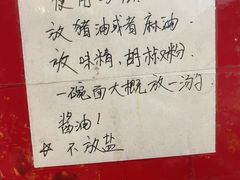 使用
放猪油或者麻油
放味精,胡椒粉
一碗面大概放一汤勺
酱油!
☆不放盐